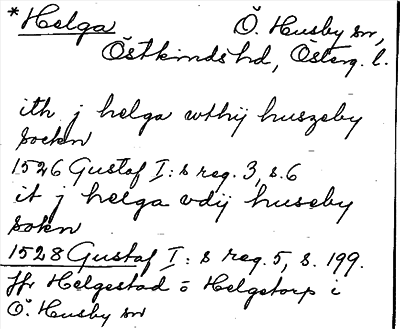 *Helga Ö. Husby sn,
Östkinds hd, Österg. l.
ith j helga wthij huszeby
Sockn
1526 Gustaf I:s reg. 3, s. 6
it j helga vdij huseby
sokn
1528 Gustaf I:s reg. 5, s. 199.
Jfr Helgestad o Helgetorp i
Ö. Husby sn